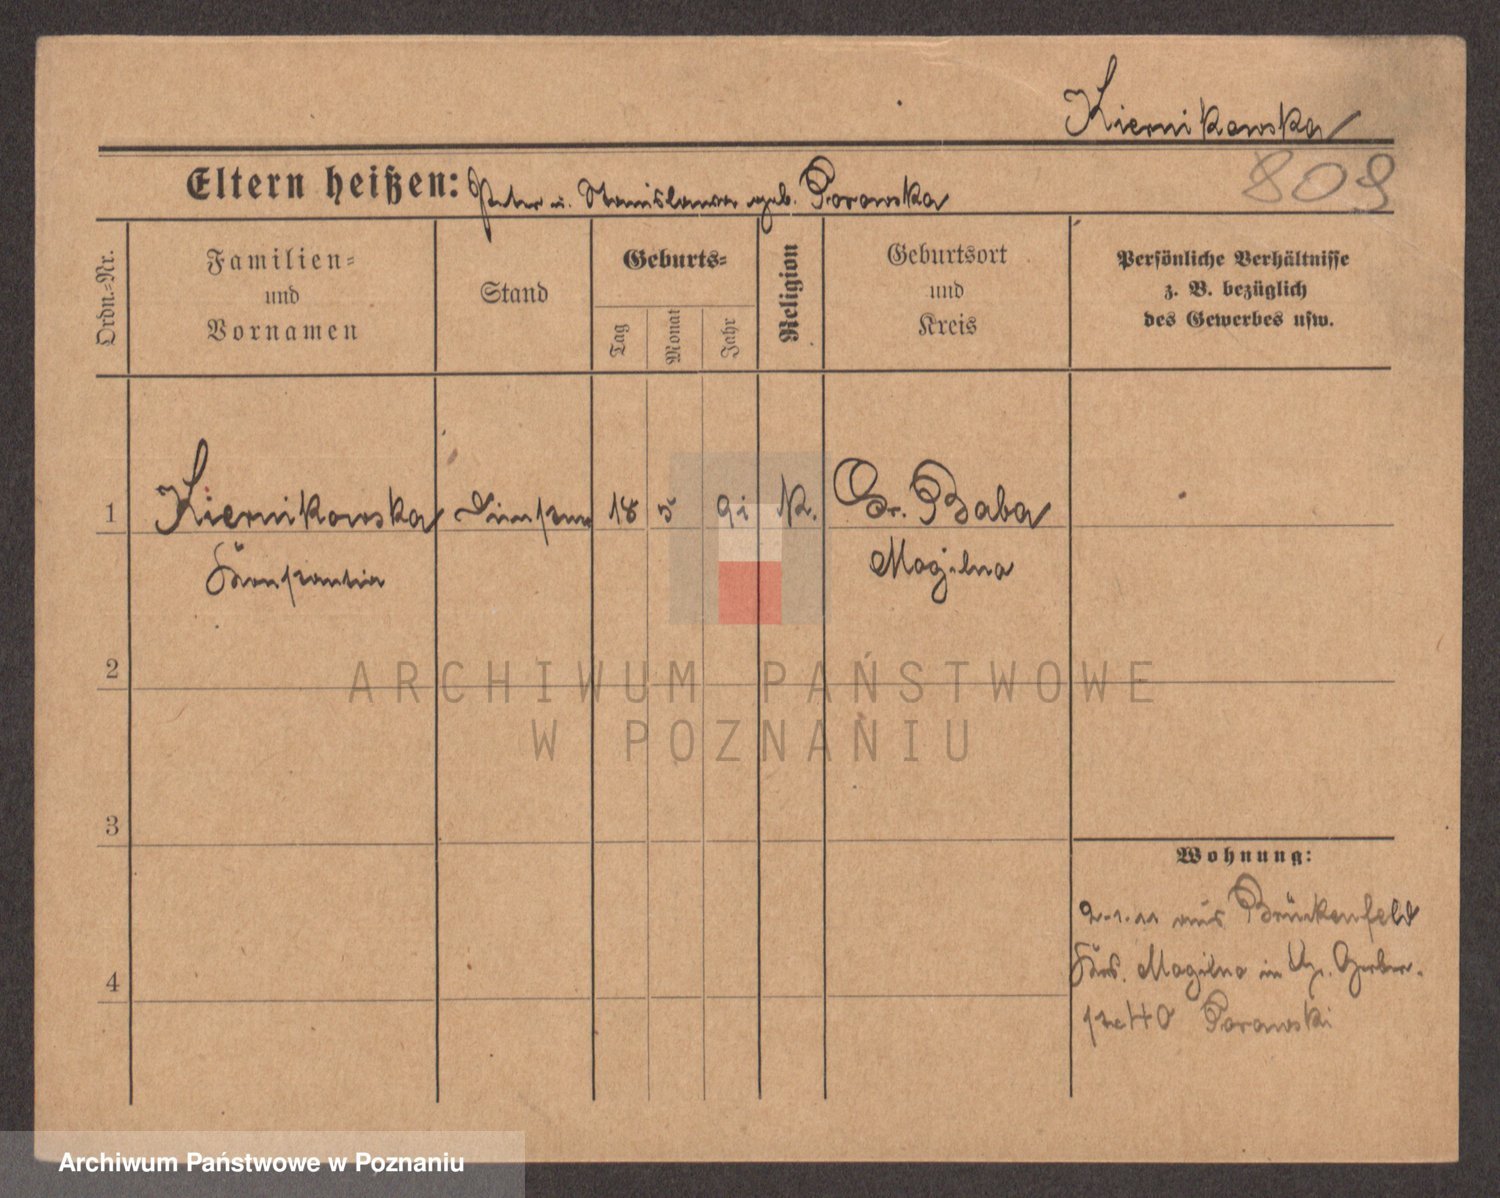 Kiernikowska
809
Eltern heißen: Peter u. Stanislawa geb. Porowska
Ordn.-Nr.
Familien-
und
Vornamen
Stand
Geburts-
Tag
Monat
Jahr
Religion
Geburtsort
und
Kreis
Persönliche Verhältnisse
z. B. bezüglich
des Gewerbes usw.
1 Kiernikowska 18 5 91 K. Gr. Baba
Konstantia Mogilno
2
3
4
Wohnung:
2.1.11 aus Brückenfeld
Krs. Mogilno in Gr. Gerber-
str 40 Porowski
ARCHIWUM PAŃSTWOWE
W POZNANIU
Archiwum Państwowe w Poznaniu